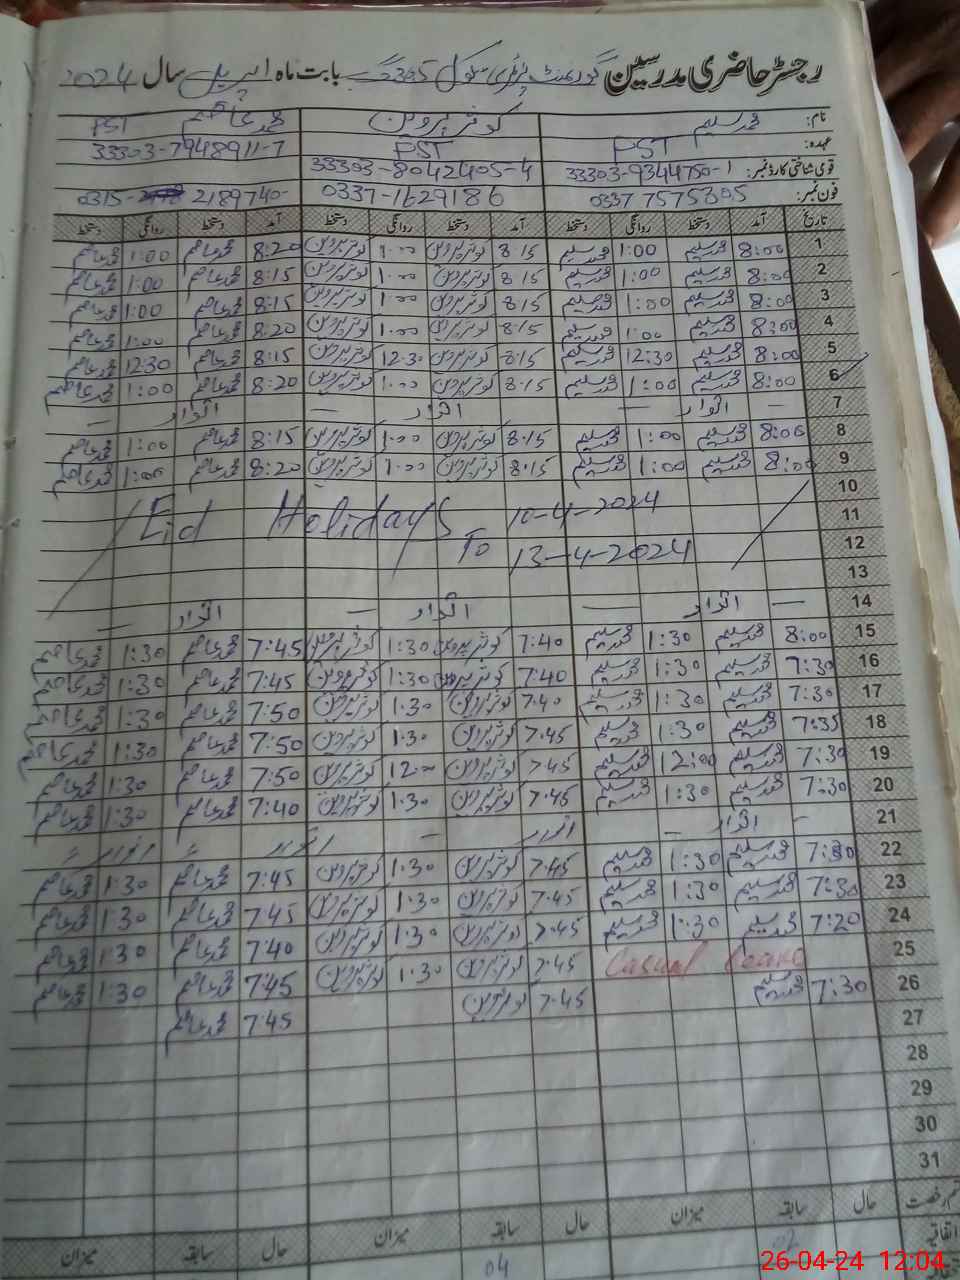 رجسٹر حاضری مدرسین گورنمنٹ پرائمری سکول 305 گ ب بابت ماہ اپریل سال 2024
نام: محمد سلیم کوثر پروین محمد عاصم
عہدہ: PST PST PST
قومی شناختی کارڈ نمبر: 33303-9344750-1 33303-8042405-4 33303-7948911-7
فون نمبر: 0337 7575305 0337-1629186 0315- 2189740-
تاریخ آمد دستخط روانگی دستخط آمد دستخط روانگی دستخط آمد دستخط روانگی دستخط
1 8:00 محمد سلیم 1:00 محمد سلیم 8:15 کوثر پروین 1:00 کوثر پروین 8:20 محمد عاصم 1:00 محمد عاصم
2 8:00 محمد سلیم 1:00 محمد سلیم 8:15 کوثر پروین 1:00 کوثر پروین 8:15 محمد عاصم 1:00 محمد عاصم
3 8:00 محمد سلیم 1:00 محمد سلیم 8:15 کوثر پروین 1:00 کوثر پروین 8:15 محمد عاصم 1:00 محمد عاصم
4 8:00 محمد سلیم 1:00 محمد سلیم 8:15 کوثر پروین 1:00 کوثر پروین 8:20 محمد عاصم 1:00 محمد عاصم
5 8:00 محمد سلیم 12:30 محمد سلیم 8:15 کوثر پروین 12:30 کوثر پروین 8:15 محمد عاصم 12:30 محمد عاصم
6 8:00 محمد سلیم 1:00 محمد سلیم 8:15 کوثر پروین 1:00 کوثر پروین 8:20 محمد عاصم 1:00 محمد عاصم
7 — اتوار — اتوار — اتوار —
8 8:00 محمد سلیم 1:00 محمد سلیم 8:15 کوثر پروین 1:00 کوثر پروین 8:15 محمد عاصم 1:00 محمد عاصم
9 8:00 محمد سلیم 1:00 محمد سلیم 8:15 کوثر پروین 1:00 کوثر پروین 8:20 محمد عاصم 1:00 محمد عاصم
10
11 Eid Holidays 10-4-2024
12 To 13-4-2024
13
14 — اتوار — اتوار — اتوار —
15 8:00 محمد سلیم 1:30 محمد سلیم 7:40 کوثر پروین 1:30 کوثر پروین 7:45 محمد عاصم 1:30 محمد عاصم
16 7:30 محمد سلیم 1:30 محمد سلیم 7:40 کوثر پروین 1:30 کوثر پروین 7:45 محمد عاصم 1:30 محمد عاصم
17 7:30 محمد سلیم 1:30 محمد سلیم 7:40 کوثر پروین 1:30 کوثر پروین 7:50 محمد عاصم 1:30 محمد عاصم
18 7:35 محمد سلیم 1:30 محمد سلیم 7:45 کوثر پروین 1:30 کوثر پروین 7:50 محمد عاصم 1:30 محمد عاصم
19 7:30 محمد سلیم 12:00 محمد سلیم 7:45 کوثر پروین 12:00 کوثر پروین 7:50 محمد عاصم 1:30 محمد عاصم
20 7:30 محمد سلیم 1:30 محمد سلیم 7:45 کوثر پروین 1:30 کوثر پروین 7:40 محمد عاصم 1:30 محمد عاصم
21 - اتوار - اتوار - اتوار اتوار
22 7:30 محمد سلیم 1:30 محمد سلیم 7:45 کوثر پروین 1:30 کوثر پروین 7:45 محمد عاصم 1:30 محمد عاصم
23 7:30 محمد سلیم 1:30 محمد سلیم 7:45 کوثر پروین 1:30 کوثر پروین 7:45 محمد عاصم 1:30 محمد عاصم
24 7:20 محمد سلیم 1:30 محمد سلیم 7:45 کوثر پروین 1:30 کوثر پروین 7:40 محمد عاصم 1:30 محمد عاصم
25 Casual Leave 7:45 کوثر پروین 1:30 کوثر پروین 7:45 محمد عاصم 1:30 محمد عاصم
26 7:30 محمد سلیم 7:45 کوثر پروین 7:45 محمد عاصم
27
28
29
30
31
رخصت حال سابقہ میزان حال سابقہ میزان حال سابقہ میزان
اتفاقیہ 02 04
26-04-24 12:04